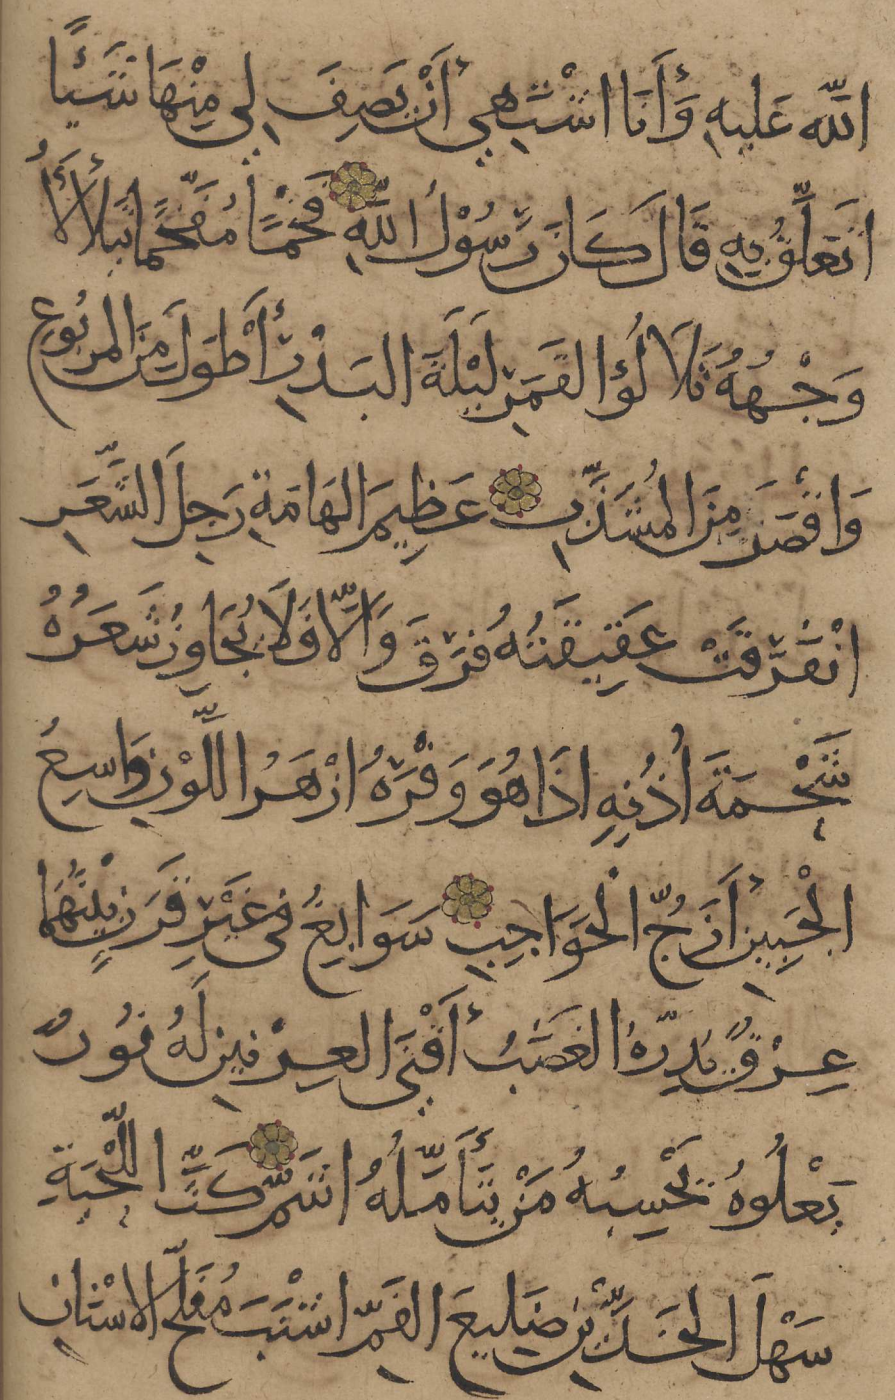 الله عليه وَأَنَا اشْتَهِي أَنْ يَصِفَ لِي مِنْهَا شَيْئًا
اَتَعَلَّقُ بِهِ قَالَ كَانَ رَسُوْلُ اللّٰهِ فَخْمًا مُفَخَّمًا يَتَلَأْلَأُ
وَجْهُهُ تَلَالُؤَ القَمَرِ لَيْلَةَ البَدْرِ أَطْوَلَ مِنَ المَرْبُوعِ
وَاَقْصَرَ مِنَ المُشَذَّبِ عَظِيمَ الهَامَةِ رَجِلَ الشَّعَرِ
انْفَرَقَتْ عَقِيقَتُهُ فُرِقَ وَاِلَّا فَلَا يُجَاوِزُ شَعَرُهُ
شَحْمَةَ اُذُنِهِ اذَا هُوَ وَفَّرَهُ ازْهَرُ اللَّوْنِ وَاسِعُ
الْجَبِينِ أَزَجُّ الْحَوَاجِبِ سَوَابِغُ فِي غَيْرِ قَرَنٍ بَيْنَهُمَا
عِرْقٌ يُدِرُّهُ الغَضَبُ أَقْنَى العِرْنِينِ لَهُ نُورٌ
يَعْلُوهُ يَحْسِبُهُ مَنْ يَتَأَمَّلُهُ اشَمَّ كَثَّ اللِّحْيَةِ
سَهْلَ الخَدَّيْنِ ضَلِيعَ الفَمِّ اشْنَبَ مُفَلَّجَ الاسْنَانِ